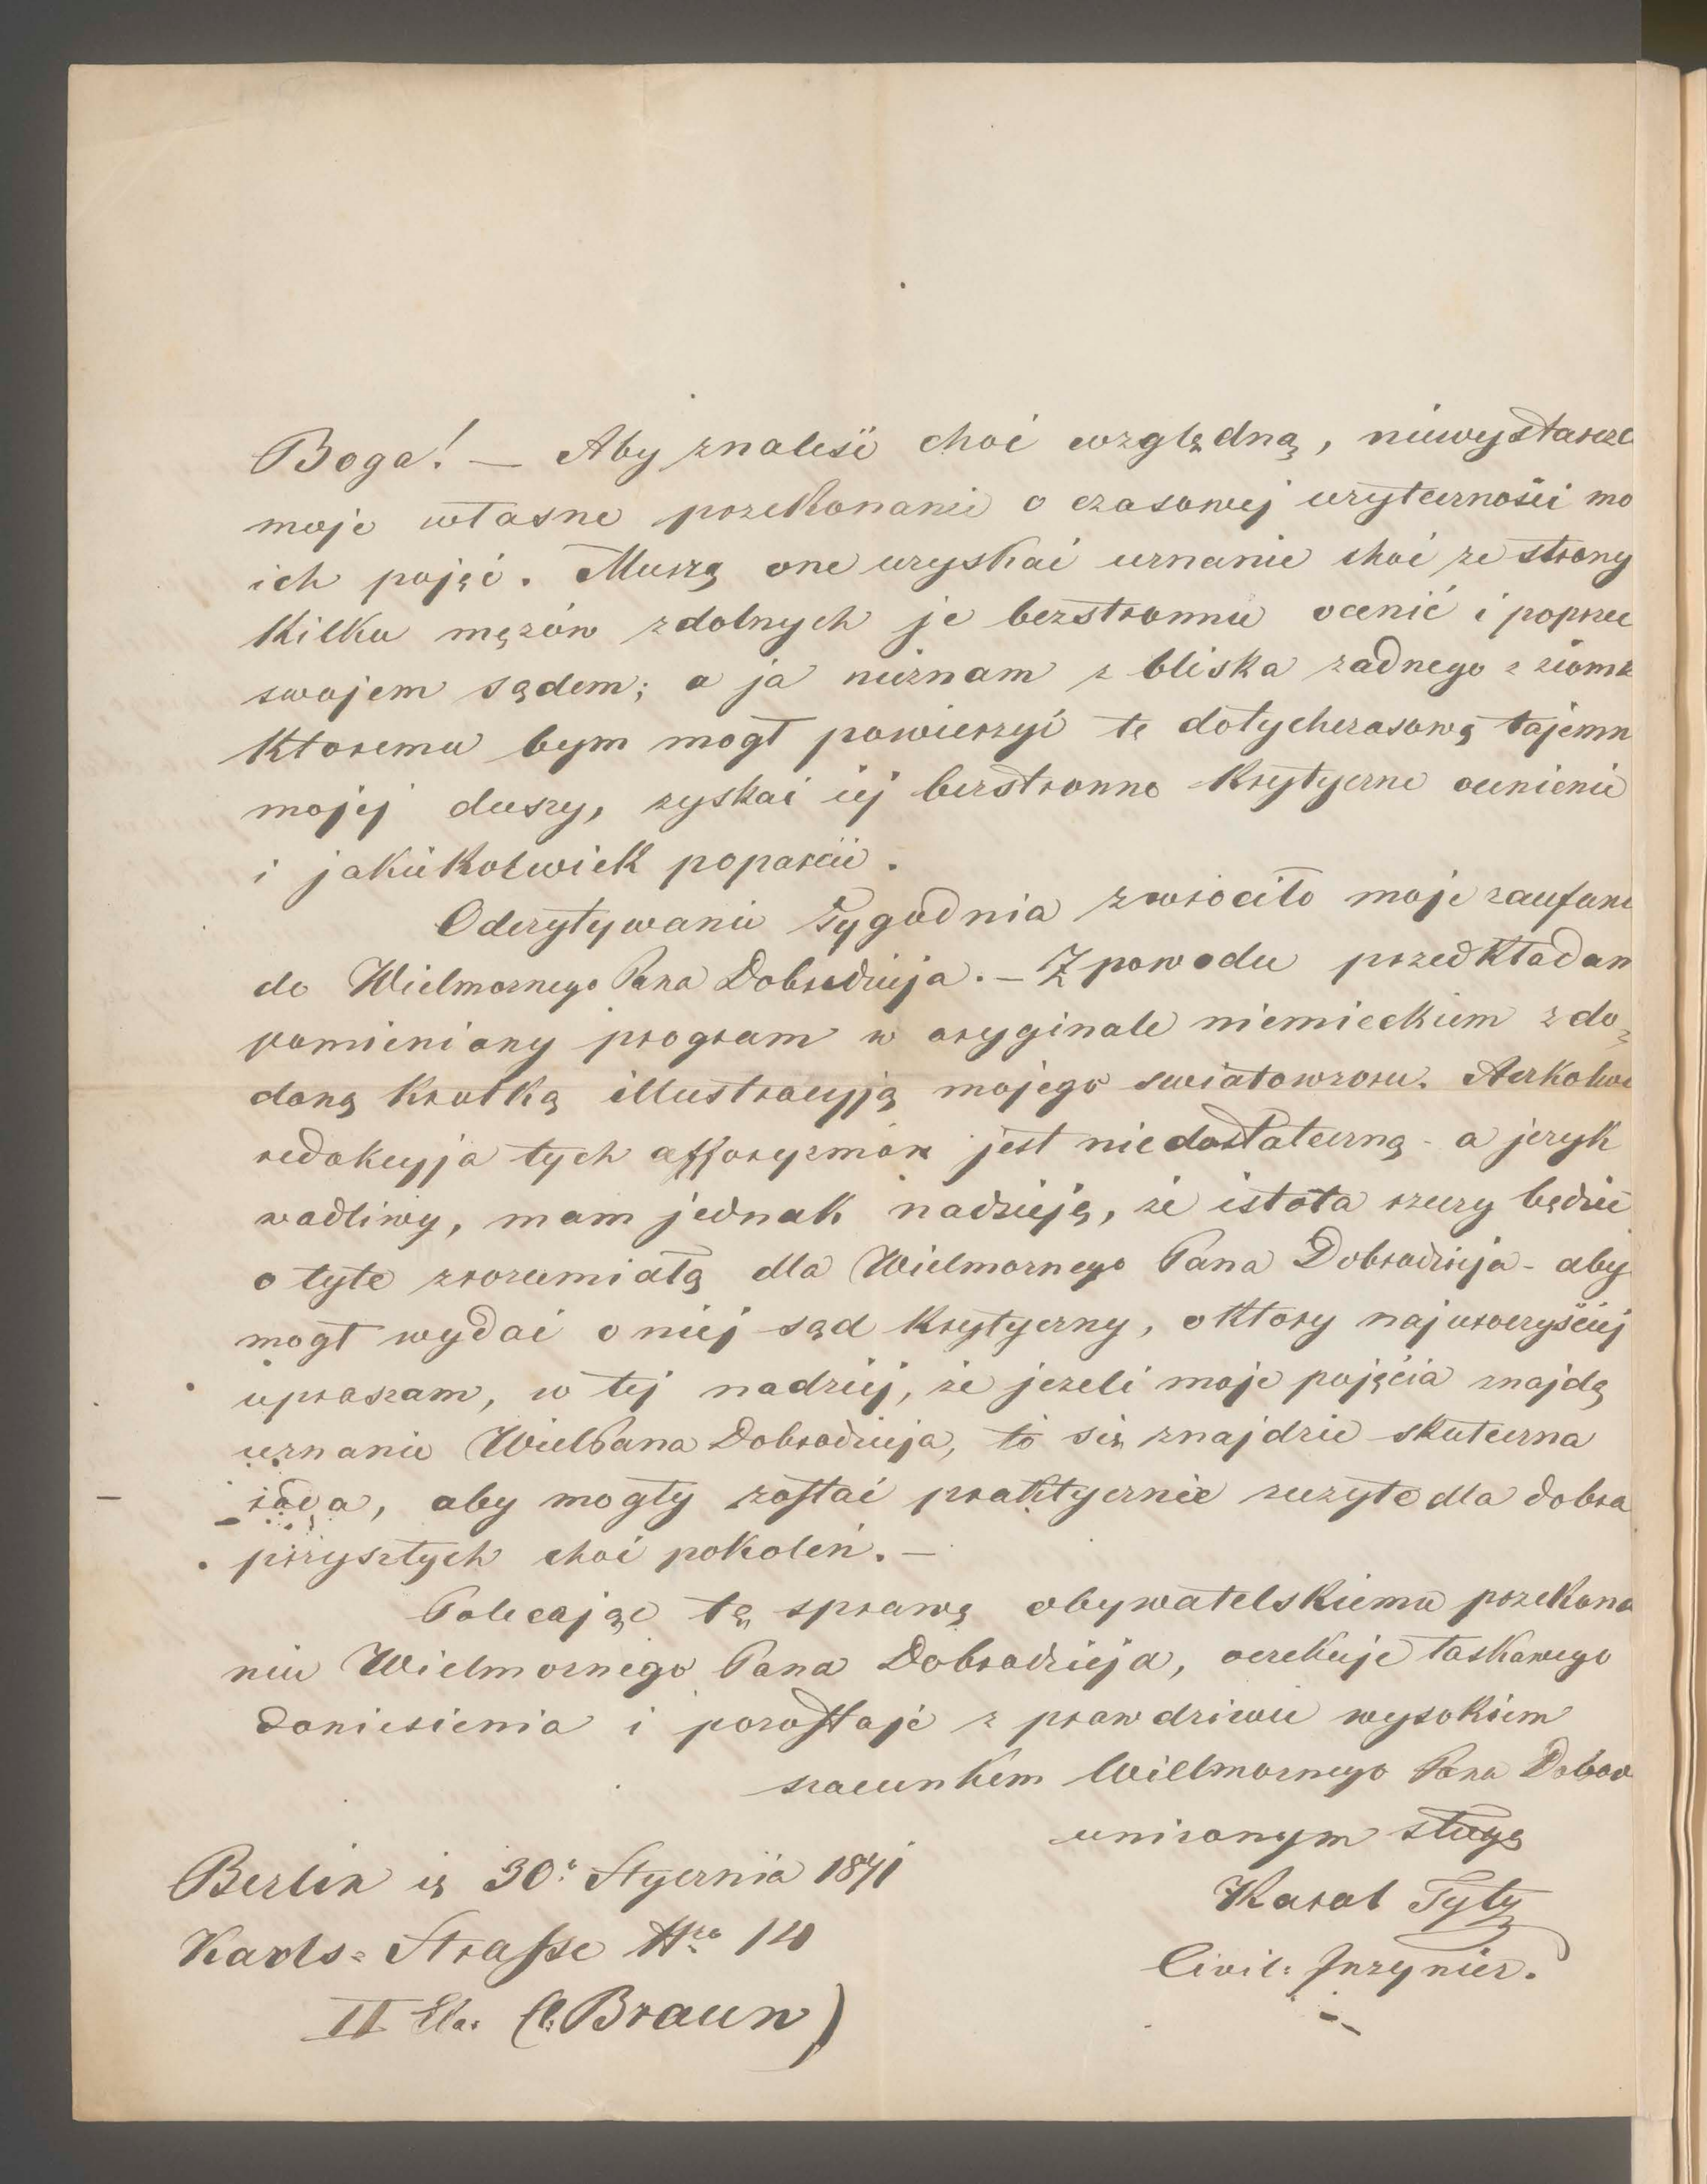 Boga! — Aby znaleść choć względną, niewystarcza
moje własne przekonanie o czasowej użyteczności mo
ich pojęć. Muszą one uzyskać uznanie choć ze strony
kilku mężów zdolnych je bezstronnie ocenić i poprzeć
swojem sądem; a ja nieznam z bliska żadnego z ziomk
ktoremu bym mogł powierzyć te dotychczasową tajemn
mojej duszy, zyskać iej bezstronne krytyczne ocenienie
i jakiekolwiek poparcie.
Odczytywanie Tygodnia zwrociło moje zaufani
do Wielmożnego Pana Dobrodzieja. — Z powodu przedkładam
pomieniony program w oryginale niemieckiem z do=
daną krotką illustracyją mojego swiatowzoru. Aczkolwi
redakcyja tych afforyzmów jest niedostateczną - a język
wadliwy, mam jednak nadzieję, że istota rzeczy będzie
o tyle zrozumiałą dla Wielmożnego Pana Dobrodzieja - aby
mogł wydać o niej sąd krytyczny, o ktory najuroczyściej
upraszam, w tej nadziej, że jezeli moje pojęcia znajdą
uznanie WielPana Dobrodzieja, to się znajdzie skuteczna
rada, aby mogły zostać praktycznie zużyte dla dobra
przyszłych choć pokoleń. —
Polecając tą sprawę obywatelskiemu przekona
niu Wielmożnego Pana Dobrodzieja, oczekuje łaskawego
doniesienia i pozostaje z prawdziwie wysokiem
szacunkiem Wielmożnego Pana Dobro
uniżonym sługą
Karol Tyły
Civil: Inżynier.
Berlin 30: Stycznia 1871
Karls=Straße Nro 14
II (C. Braun)